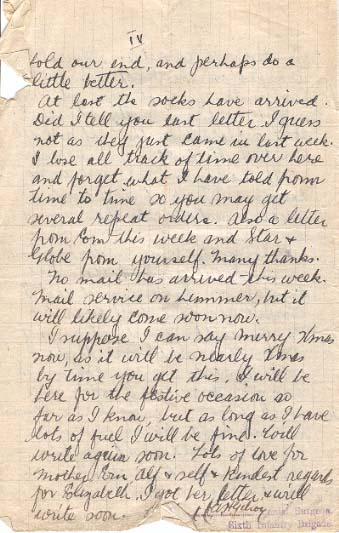 IV
hold our end, and perhaps do a
little better.
At last the socks have arrived.
Did I tell you last letter I guess
not as they just came in last week.
I lose all track of time over here
and forget what I have told from
time to time so you may get
several repeat orders. Also a letter
from Em this week and Star &
Globe from yourself. Many thanks.
No mail has arrived this week.
Mail service on bummer, but it
will likely come soon now.
I suppose I can say merry Xmas
now, as it will be nearly Xmas
by time you get this. I will be
here for the festive occasion so
far as I know, but as long as I have
lots of fuel I will be fine. Will
write again soon. Lots of love for
mother Em Alf & self & kindest regards
for Elizabeth. I got her letter & will
write soon.
Sixth Infantry Brigade